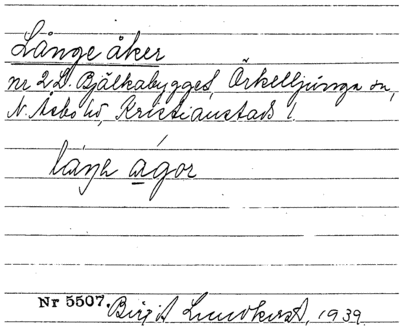 Långe åker
nr 2 L. Bjälkabygget, Örkelljunga sn,
N. Åsbo hd, Kristianstads l.
låŋa ågor
Nr 5507. Birgit Lundkvist, 1939